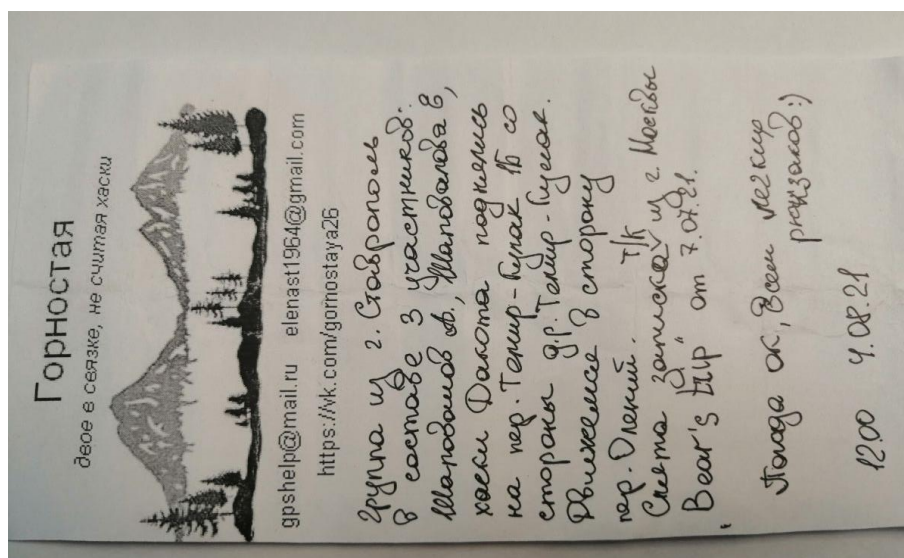 Горностая
двое в связке, не считая хаски
gpshelp@mail.ru elenast1964@gmail.com
https://vk.com/gornostaya26
Группа из г. Ставрополь
в составе 3 участников:
Шаповалов А., Шаповалова Е,
хаски Дакота поднялись
на пер. Темир-Кулак 1Б со
стороны д.р. Темир-Кулак.
Движемся в сторону
пер. Олений.
Снята записка т/к из г. Москвы
Bear's trip" от 7.07.21.
Погода ок, всем легких
рюкзаков :)
12.00 4.08.21